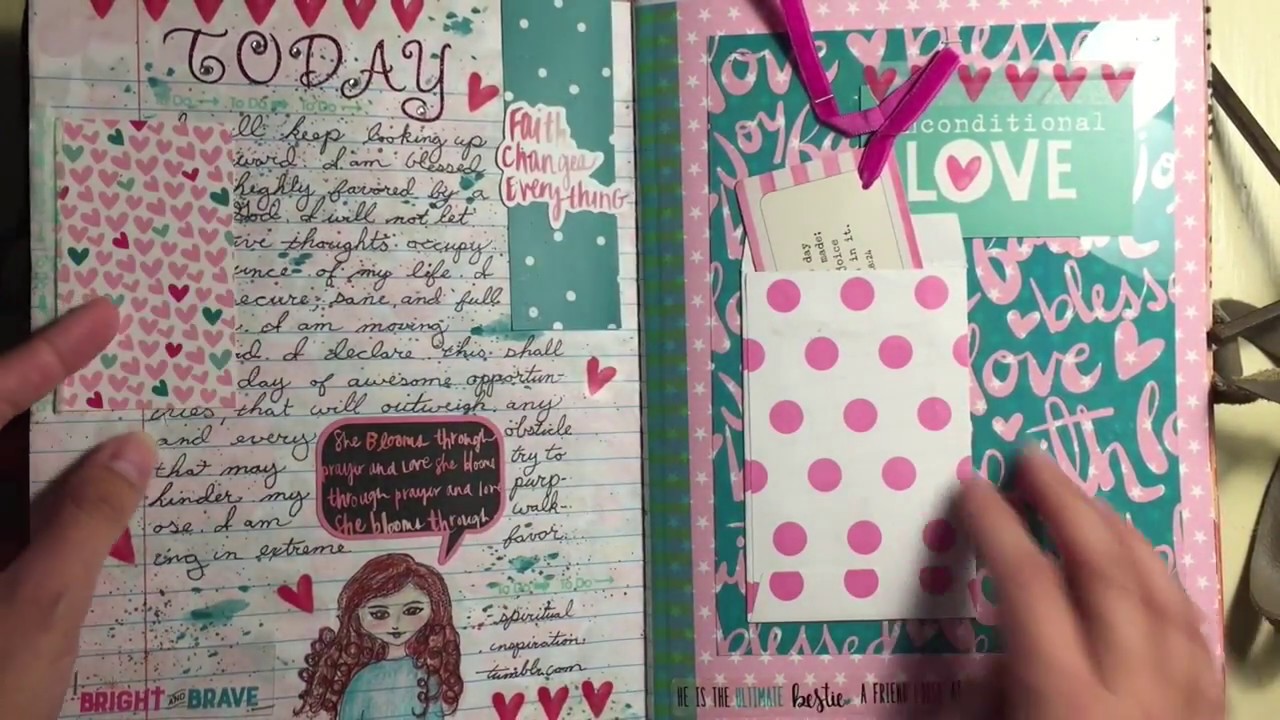 TODAY
To Do To Do To Do
ll keep looking up
ward. I am blessed
highly favored by a
God. I will not let
ive thoughts occupy
unce of my life. I
ecure, sane, and full
. I am moving
d. I declare this shall
day of awesome opportun-
ities that will outweigh any
and every obsticle
that may try to
hinder my purp-
ose. I am walk-
ing in extreme favor.
Faith
Changes
Everything
She Blooms through
prayer and love she blooms
through prayer and love
she blooms through
To Do To Do
spiritual
inspiration.
tumblr.com
BRIGHT AND BRAVE
love blesse
joy
unconditional
LOVE
day
made;
joice
in it.
8:24
blesse
love
blessed
HE IS THE ULTIMATE bestie A FRIEND